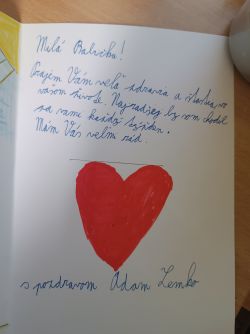 Milá Babička!
Prajem Vám veľa zdravia a šťastia, vo
vašom živote. Najradšej by som chodil
za vami každý týždeň.
Mám Vás veľmi rád.
s pozdravom Adam Zemko